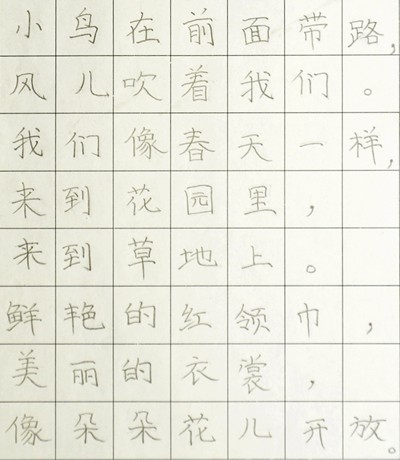 小鸟在前面带路,
风儿吹着我们。
我们像春天一样,
来到花园里,
来到草地上。
鲜艳的红领巾,
美丽的衣裳,
像朵朵花儿开放。